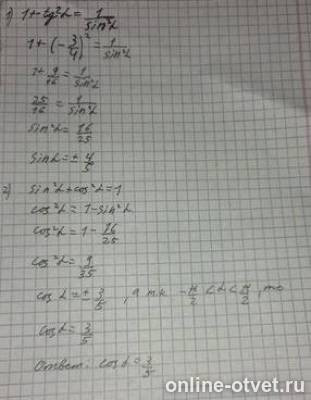 1) 1 + tg²α = 1/sin²α
1 + (-3/4)² = 1/sin²α
1 + 9/16 = 1/sin²α
25/16 = 1/sin²α
sin²α = 16/25
sin α = ± 4/5
2) sin²α + cos²α = 1
cos²α = 1 - sin²α
cos²α = 1 - 16/25
cos²α = 9/25
cos α = ± 3/5 , а т.к. -π/2 < α < π/2, то
cos α = 3/5
Ответ: cos α = 3/5
online-otvet.ru